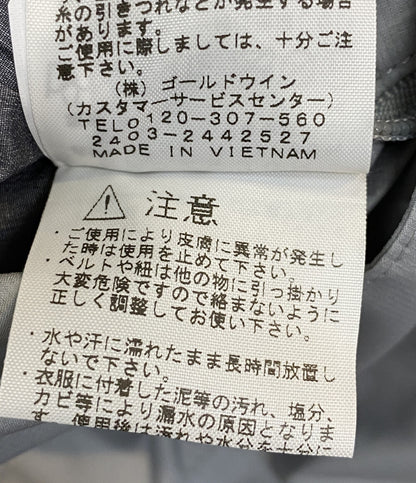 糸の引きつれなどが発生する場合
があります。
ご使用に際しましては、十分ご注
意下さい。
(株) ゴールドウイン
(カスタマーサービスセンター)
TEL0120-307-560
2403-2442527
MADE IN VIETNAM
注意
・ご使用により皮膚に異常が発生し
た時は使用を止めて下さい。
・ベルトや紐は他の物に引っ掛かり
大変危険ですので絡まないように
正しく調整してお使い下さい。
・水や汗に濡れたまま長時間放置し
ないで下さい。
・衣服に付着した泥等の汚れ、塩分、
カビ等により漏水の原因となりま
す。使用後は汚れや水分を十分に